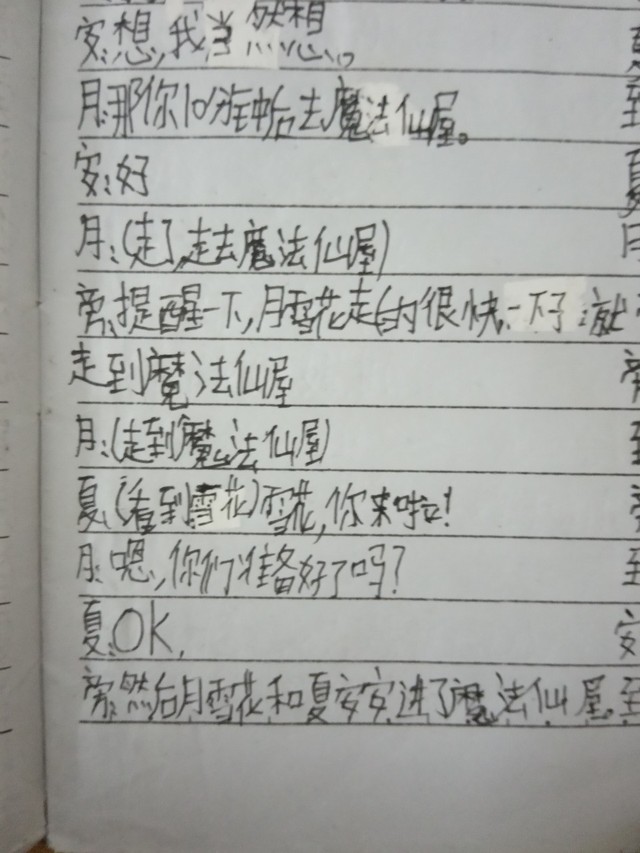 安:想,我当然想。
月:那你10分钟后去魔法仙屋。
安:好
月:(走了,走去魔法仙屋)
旁:提醒一下,月雪花走的很快,一下子就
走到魔法仙屋
月:(走到魔法仙屋)
夏:(看到雪花)雪花,你来啦!
月:嗯,你们准备好了吗?
夏:OK,
旁:然后月雪花和夏安安进了魔法仙屋